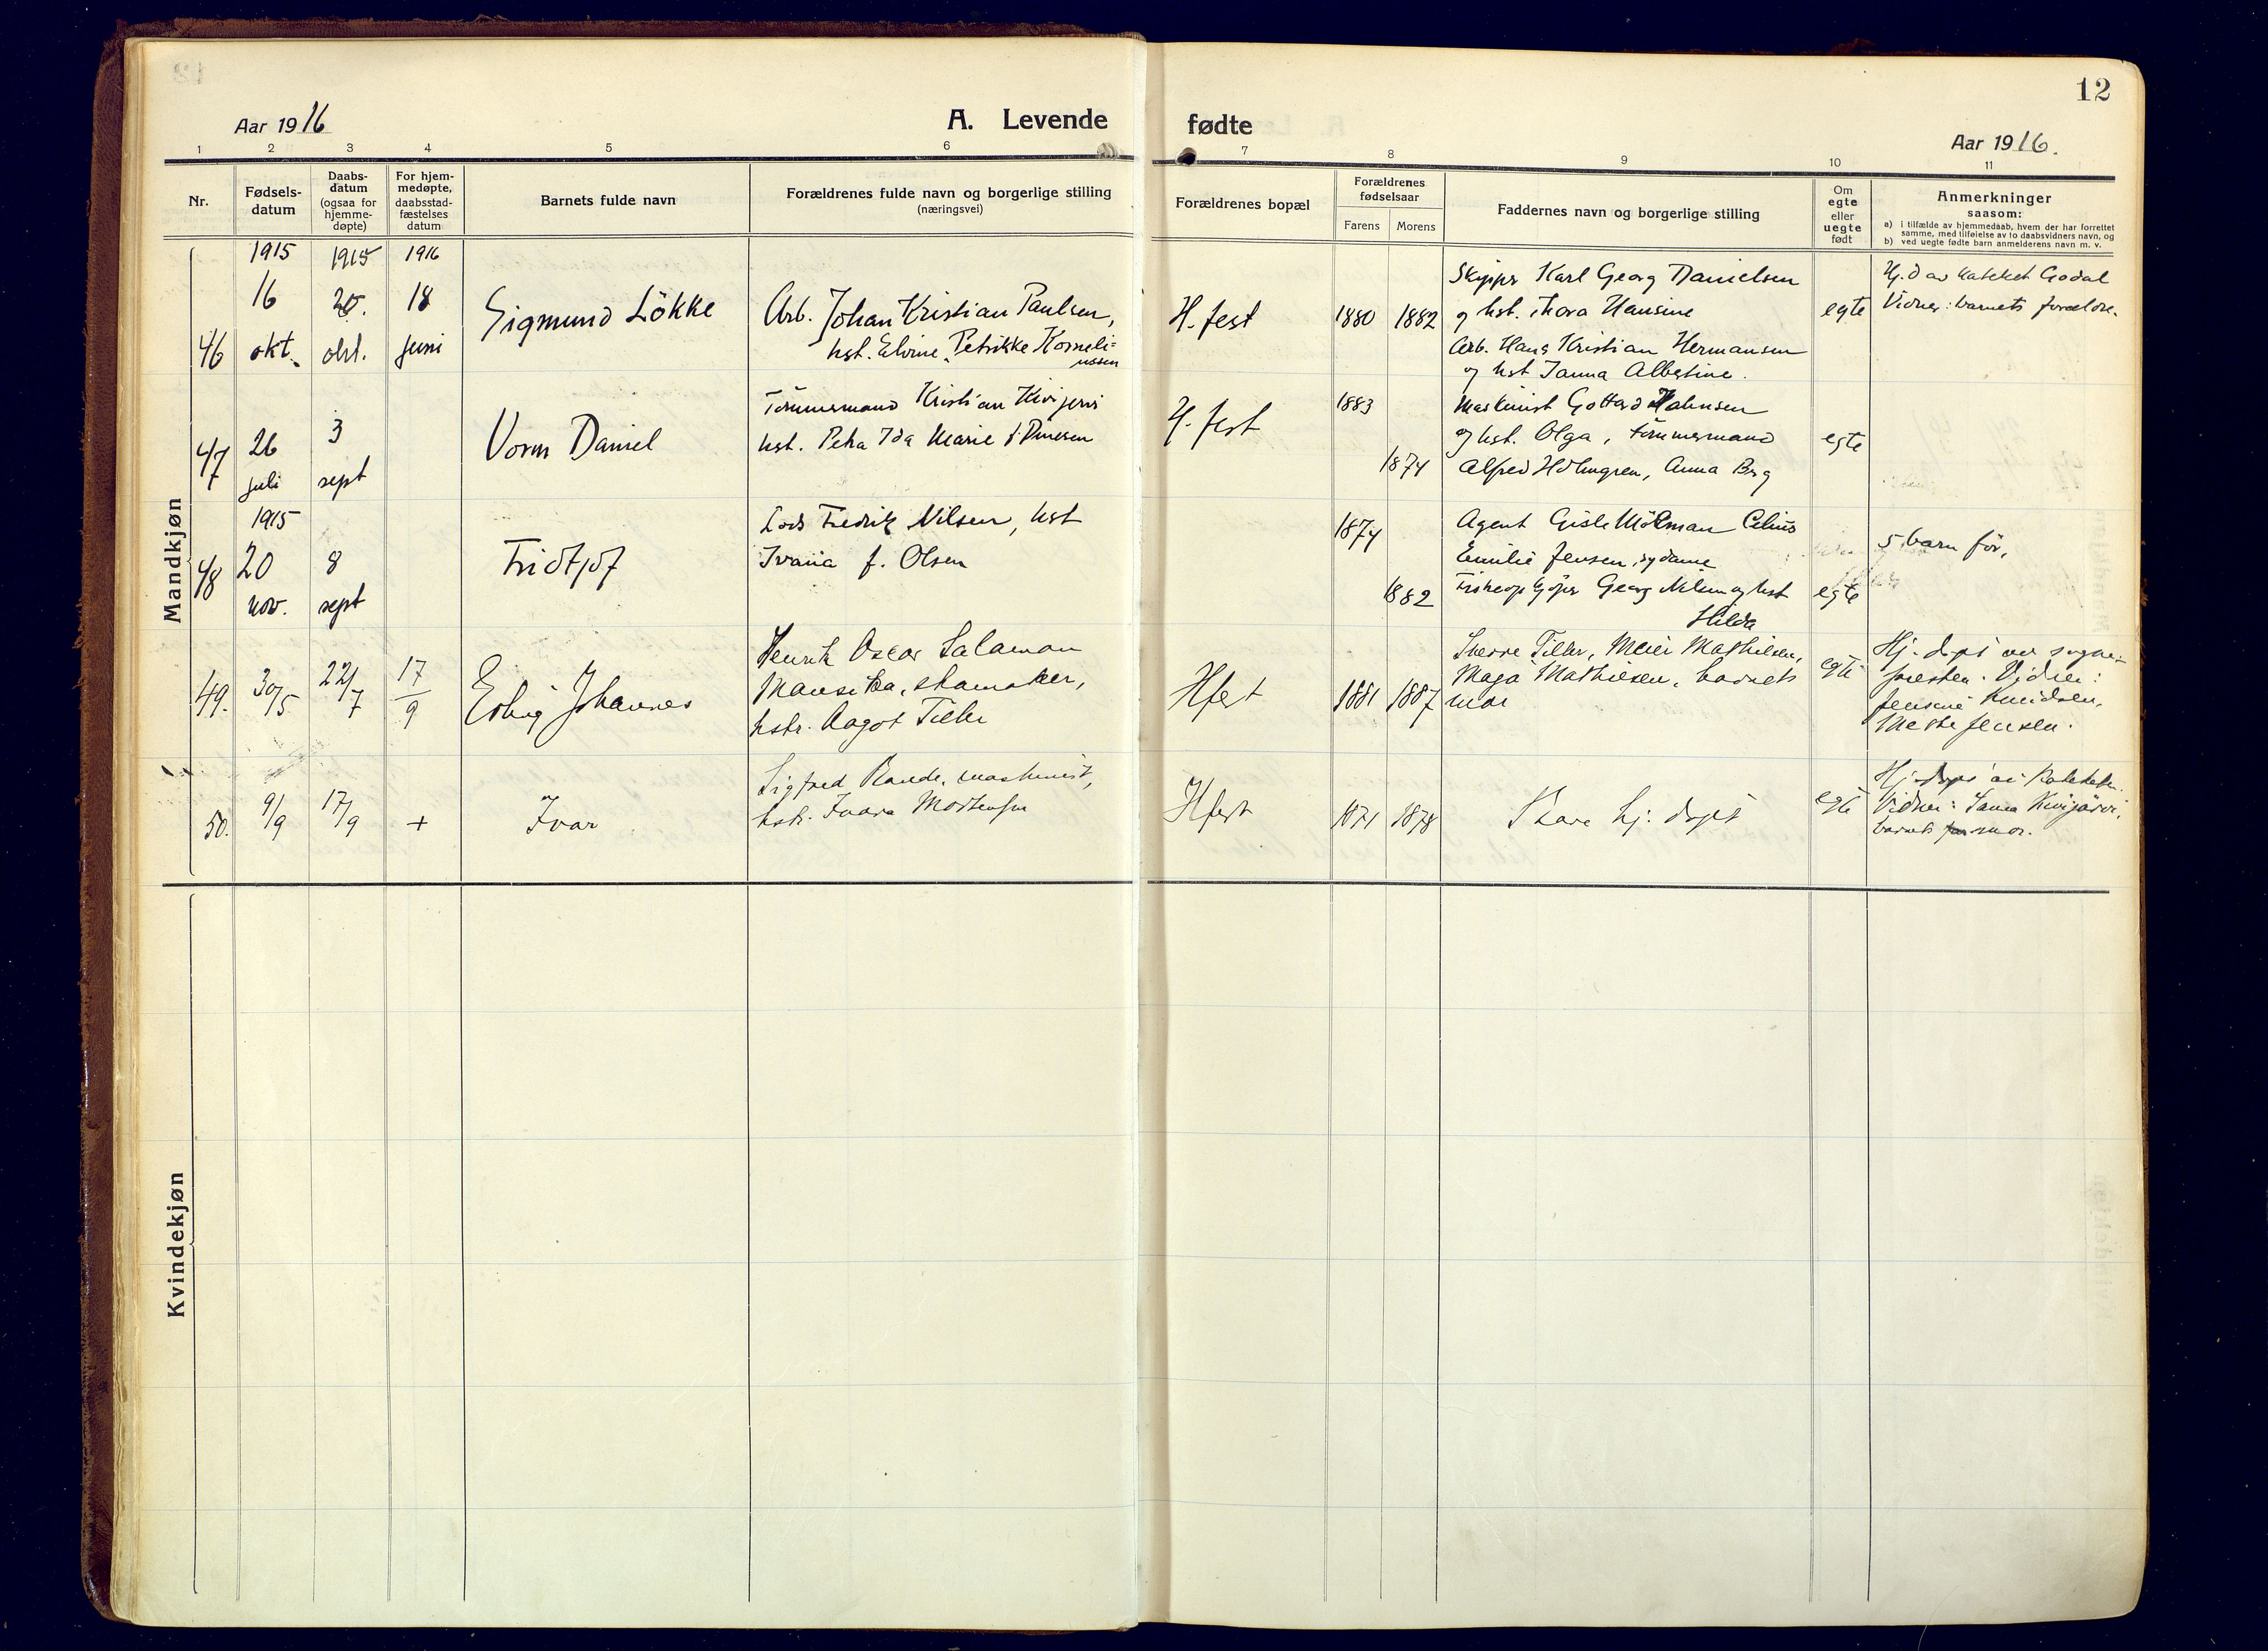 12
Aar 1916
A. Levende fødte
Aar 1916.
1 2 3 4 5 6 7 8 9 10 11
Nr.
Fødsels-
datum
Daabs-
datum
(ogsaa for
hjemme-
døpte)
For hjem-
medøpte,
daabsstad-
fæstelses
datum
Barnets fulde navn
Forældrenes fulde navn og borgerlige stilling
(næringsvei)
Forældrenes bopæl
Forældrenes
fødselsaar
Farens Morens
Faddernes navn og borgerlige stilling
Om
egte
eller
uegte
født
Anmerkninger
saasom:
a) i tilfælde av hjemmedaab, hvem der har forrettet
samme, med tilføielse av to daabsvidners navn, og
b) ved uegte fødte barn anmelderens navn m. v.
Mandkjøn
46
1915
16
okt.
1915
20.
okt.
1916
18
juni
Sigmund Lökke
Arb. Johan Kristian Paulsen,
hst. Elvine Petrikke Korneli-
ussen
H.fest
1880 1882
Skipper Karl Georg Danielsen
og hst. Thora Hansine
Arb. Hans Kristian Hermansen
og hst Janna Albertine.
egte
Hj. d av kateket Godal
Vidner: barnets forældre.
47
26
juli
3
sept
Vorm Daniel
Tömmermand Kristian Kivijervi
hst. Petra Ida Marie f.
H.fest
1883
1874
Maskinist Gottard Johnsen
og hst. Olga, tömmermand
Alfred Holmgren, Anna Berg
egte
48
1915
20
nov.
8
sept
Fridtjof
Lods Fredrik Nilsen, hst
Ivaria f. Olsen
1874
1882
Agent Gisle Celius
Emilie Jensen, sydame
Georg Nilsen og hst
Hilda
egte
5 barn för,
49.
30/5
22/7
17/9
Johannes
Henrik Oscar Salamon
skomaker,
hstr. Aagot Tiller
Hfest
1881 1887
Sverre Tiller, Meier Mathisen,
Maja Mathiesen, barnets
mor
egte
Hj. døpt av sogne-
presten. Vidner:
Jensine Knudsen,
Mette Jensen.
50.
9/9
17/9
+
Ivar
Sigfred Rande, maskinist,
hstr. Ivara Mortensen
Hfest
1871 1878
Bare hj. døpt
egte
Hj. døpt av Kateketen.
Vidner: Kivijärvi,
barnets mor.
Kvindekjøn